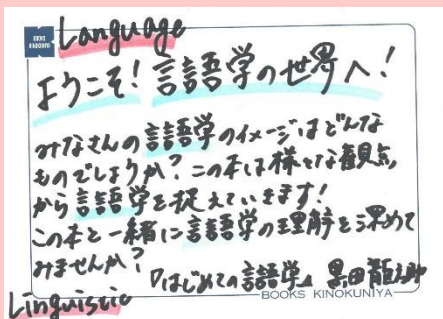 Language
ようこそ！言語学の世界へ！
みなさんの言語学のイメージはどんな
ものでしょうか？この本は様々な観点
から言語学を捉えていきます！
この本と一緒に言語学の理解を深めて
みませんか？
『はじめての言語学』黒田龍之助
BOOKS KINOKUNIYA
Linguistic